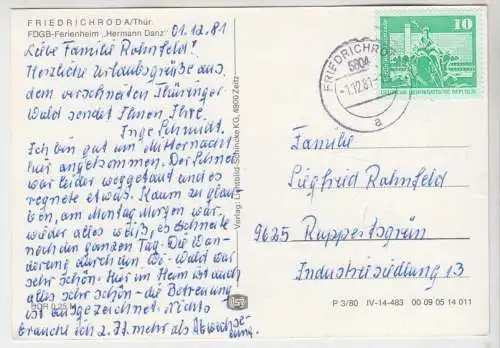 FRIEDRICHRODA/Thür.
FDGB-Ferienheim „Hermann Danz"
01.12.81
Liebe Familie Rahnfeld!
Herzliche Urlaubsgrüße aus
dem verschneiten Thüringer
Wald sendet Ihnen Ihre
Inge Schmidt.
Ich bin gut um Mitternacht
hier angekommen. Der Schnee
war leider weggetaut und es
regnete etwas. Kaum zu glau-
ben, am Montag Morgen war
wieder alles weiß, es schneite
noch den ganzen Tag. Die Wan-
derung durch den Wi-Wald war
sehr schön. Hier im Heim ist auch
alles sehr schön - die Betreuung
ist ausgezeichnet. Nichts
brauche ich z. Zt. mehr als Abwechse-
lung.
EVP 0,25 M
Verlag: Lichtbild-Schincke KG, 4900 Zeitz
FRIEDRICHRODA
5804
-1.12.81
a
10
DEUTSCHE DEMOKRATISCHE REPUBLIK
Familie
Siegfried Rahnfeld
9625 Ruppertsgrün
Industriesiedlung 13
P 3/80 IV-14-483 00 09 05 14 011